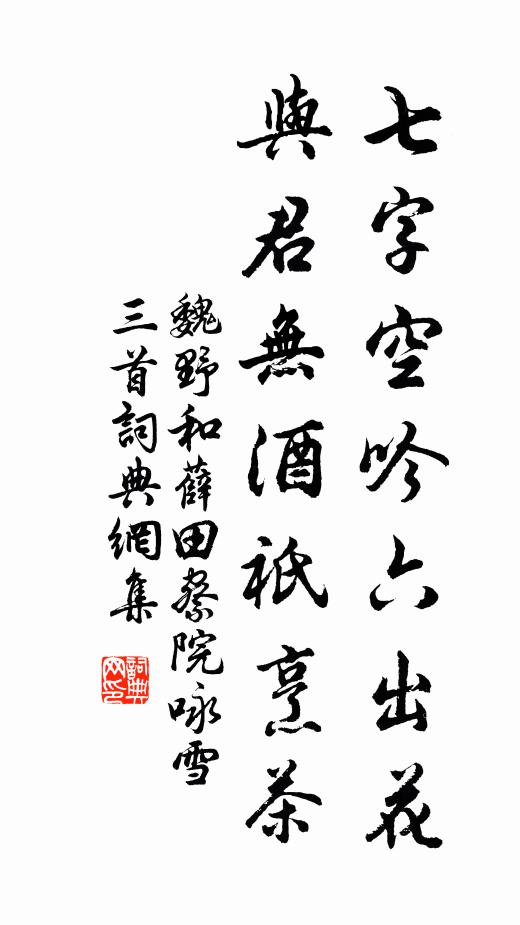 七字空吟六出花
與君無酒祇烹茶
魏野和薛田察院咏雪
三首詞典網集
詞典网印